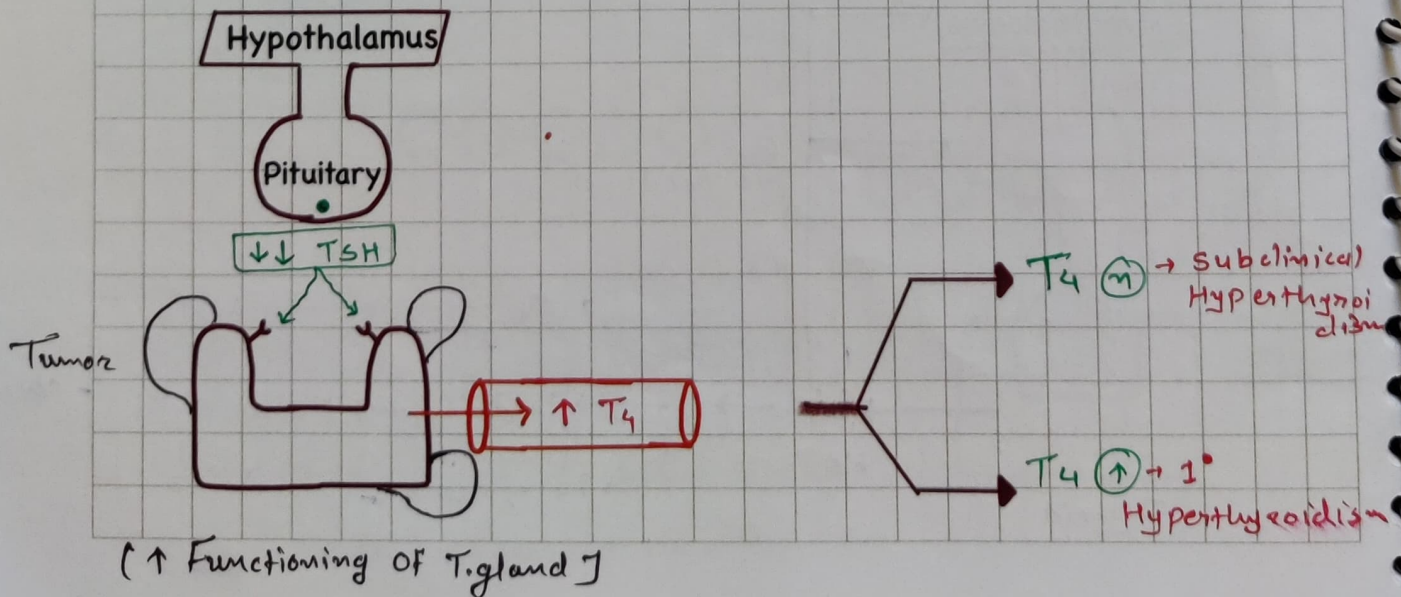 Hypothalamus
Pituitary
↓↓ TSH
Tumor
↑ T4
(↑ Functioning Of T.gland]
T4 (n) → Subclinical
Hyperthyroi
dism
T4 (↑) → 1°
Hyperthyroidism